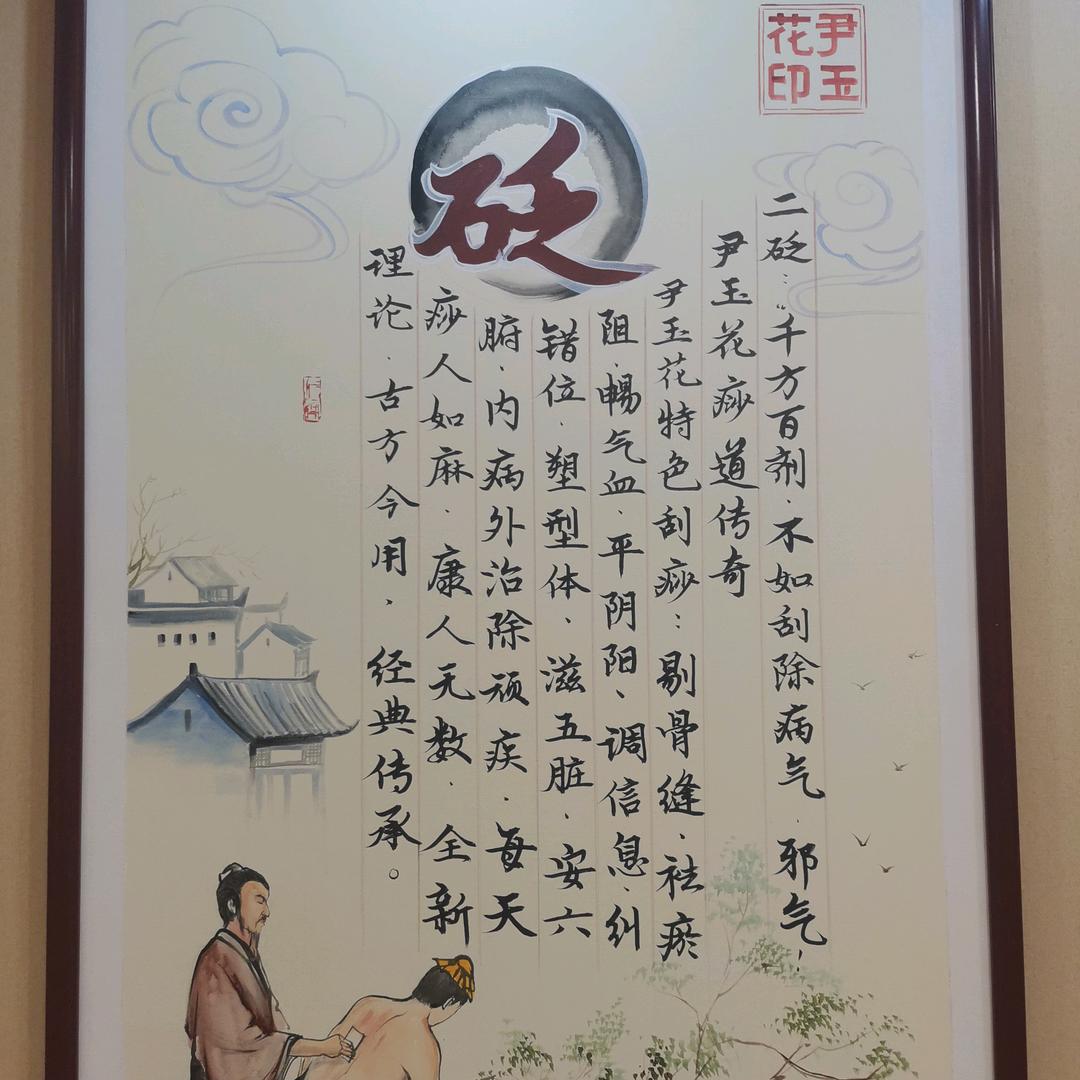 尹玉
花印
砭
二砭："千方百剂、不如刮除病气、邪气，
尹玉花痧道传奇
尹玉花特色刮痧：剔骨缝、祛瘀
阻、畅气血、平阴阳、调信息、纠
错位、塑型体、滋五脏、安六
腑、内病外治除顽疾、每天
痧人如麻、康人无数、全新
理论、古方今用，经典传承。